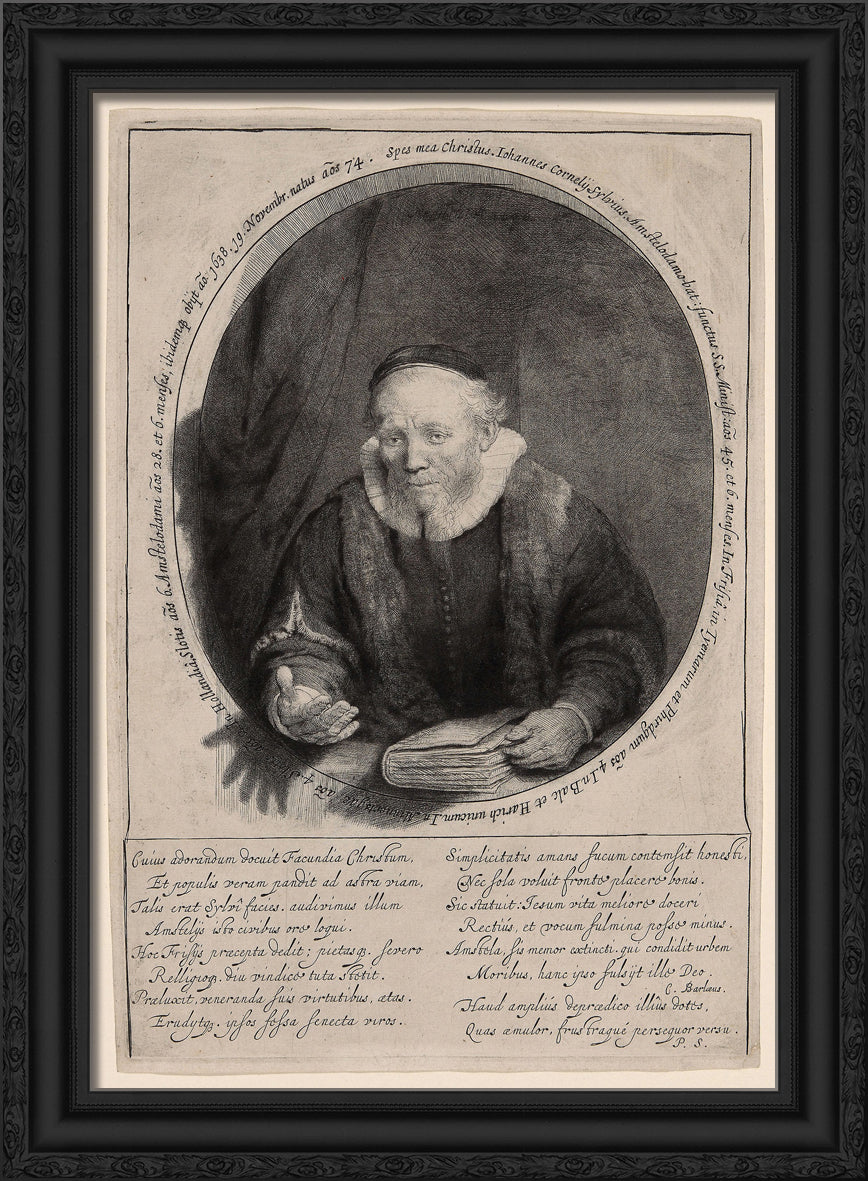 Spes mea Christus. Iohannes Cornelij Sylvius, Amstelodamo-bat: functus S.S. Minist: aōs 45. et 6. menses. In Frisiâ in Tyemarum et Phirdgum aōs 4. In Balc et Harich unicum. In Minnertsga aōs 4. Slotis aōs 6. Amstelodami aōs 28. et 6. menses; ibidemq3 obijt aō. 1638. 19. Novembr. natus aōs 74.
Cuius adorandum docuit Facundia Christum,
Et populis veram pandit ad astra viam,
Talis erat Sylvî facies. audivimus illum
Amstelijs isto civibus ore loqui.
Hoc Frisijs præcepta dedit; pietasq3. severo
Relligioq3. diu vindice tuta stetit.
Præluxit, veneranda suis virtutibus, ætas.
Erudytq3. ipsos fessa senecta viros.
Simplicitatis amans fucum contemsit honesti,
Nec sola voluit fronte placere bonis.
Sic statuit: Iesum vita meliore doceri
Rectiùs, et vocum fulmina posse minus.
Amstela, sis memor extincti. qui condidit urbem
Moribus, hanc ipso fulsijt ille Deo.
C. Barlæus.
Haud ampliùs deprædico illius dotes,
Quas æmulor, frustraque persequor versu.
P. S.